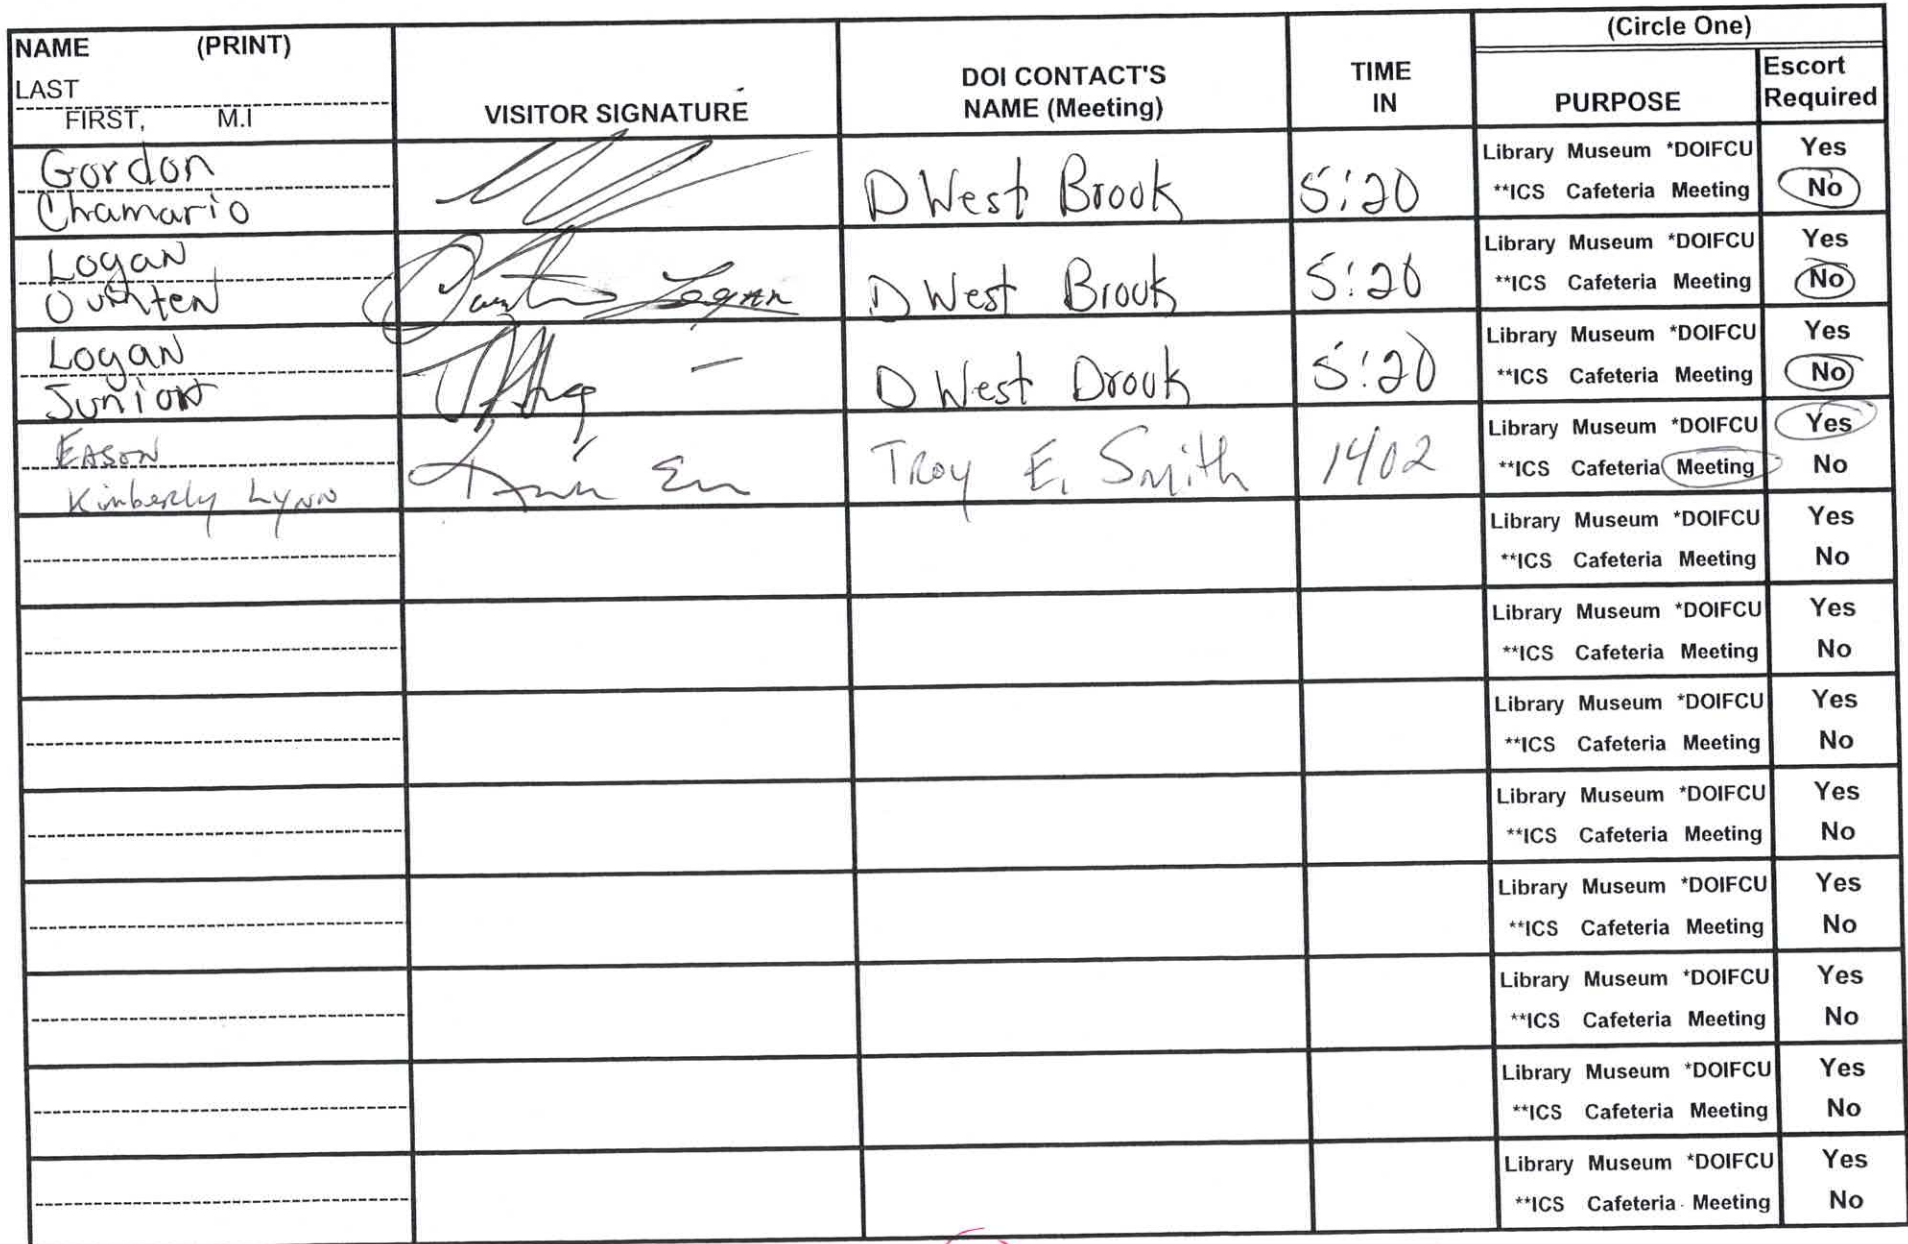 NAME (PRINT)
LAST
FIRST, M.I
VISITOR SIGNATURE
DOI CONTACT'S
NAME (Meeting)
TIME
IN
(Circle One)
PURPOSE
Escort
Required
Gordon
Chamario
D West Brook
5:20
Library Museum *DOIFCU Yes
**ICS Cafeteria Meeting No
Logan
Logan
D West Brook
5:20
Library Museum *DOIFCU Yes
**ICS Cafeteria Meeting No
Logan
Junior
D West Drook
5:20
Library Museum *DOIFCU Yes
**ICS Cafeteria Meeting No
EASON
Kimberly Lynn
Troy E. Smith
1402
Library Museum *DOIFCU Yes
**ICS Cafeteria Meeting No
Library Museum *DOIFCU Yes
**ICS Cafeteria Meeting No
Library Museum *DOIFCU Yes
**ICS Cafeteria Meeting No
Library Museum *DOIFCU Yes
**ICS Cafeteria Meeting No
Library Museum *DOIFCU Yes
**ICS Cafeteria Meeting No
Library Museum *DOIFCU Yes
**ICS Cafeteria Meeting No
Library Museum *DOIFCU Yes
**ICS Cafeteria Meeting No
Library Museum *DOIFCU Yes
**ICS Cafeteria Meeting No
Library Museum *DOIFCU Yes
**ICS Cafeteria Meeting No